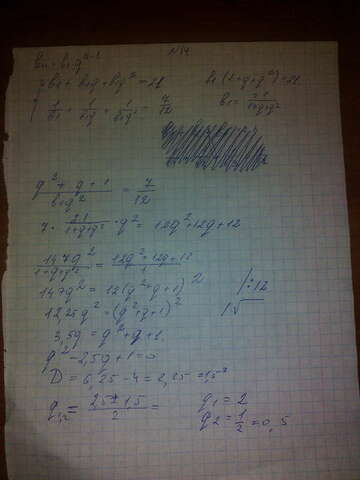 bn = b1q^n-1 N14
b1 + b1q + b1q² = 21 b1(1+q+q²) = 21
1/b1 + 1/b1q + 1/b1q² = 7/12 b1 = 21/1+q+q²
q²+q+1/b1q² = 7/12
7 · 21/1+q+q² · q² = 12q²+12q+12
147q²/1+q+q² = 12q²+12q+12/1
147q² = 12(q²+q+1)² /:12
12,25q² = (q²+q+1)² /√
3,5q = q²+q+1
q² - 2,5q + 1 = 0
D = 6,25 - 4 = 2,25 = 1,5²
q1,2 = 2,5±1,5/2 = q1 = 2
q2 = 1/2 = 0,5